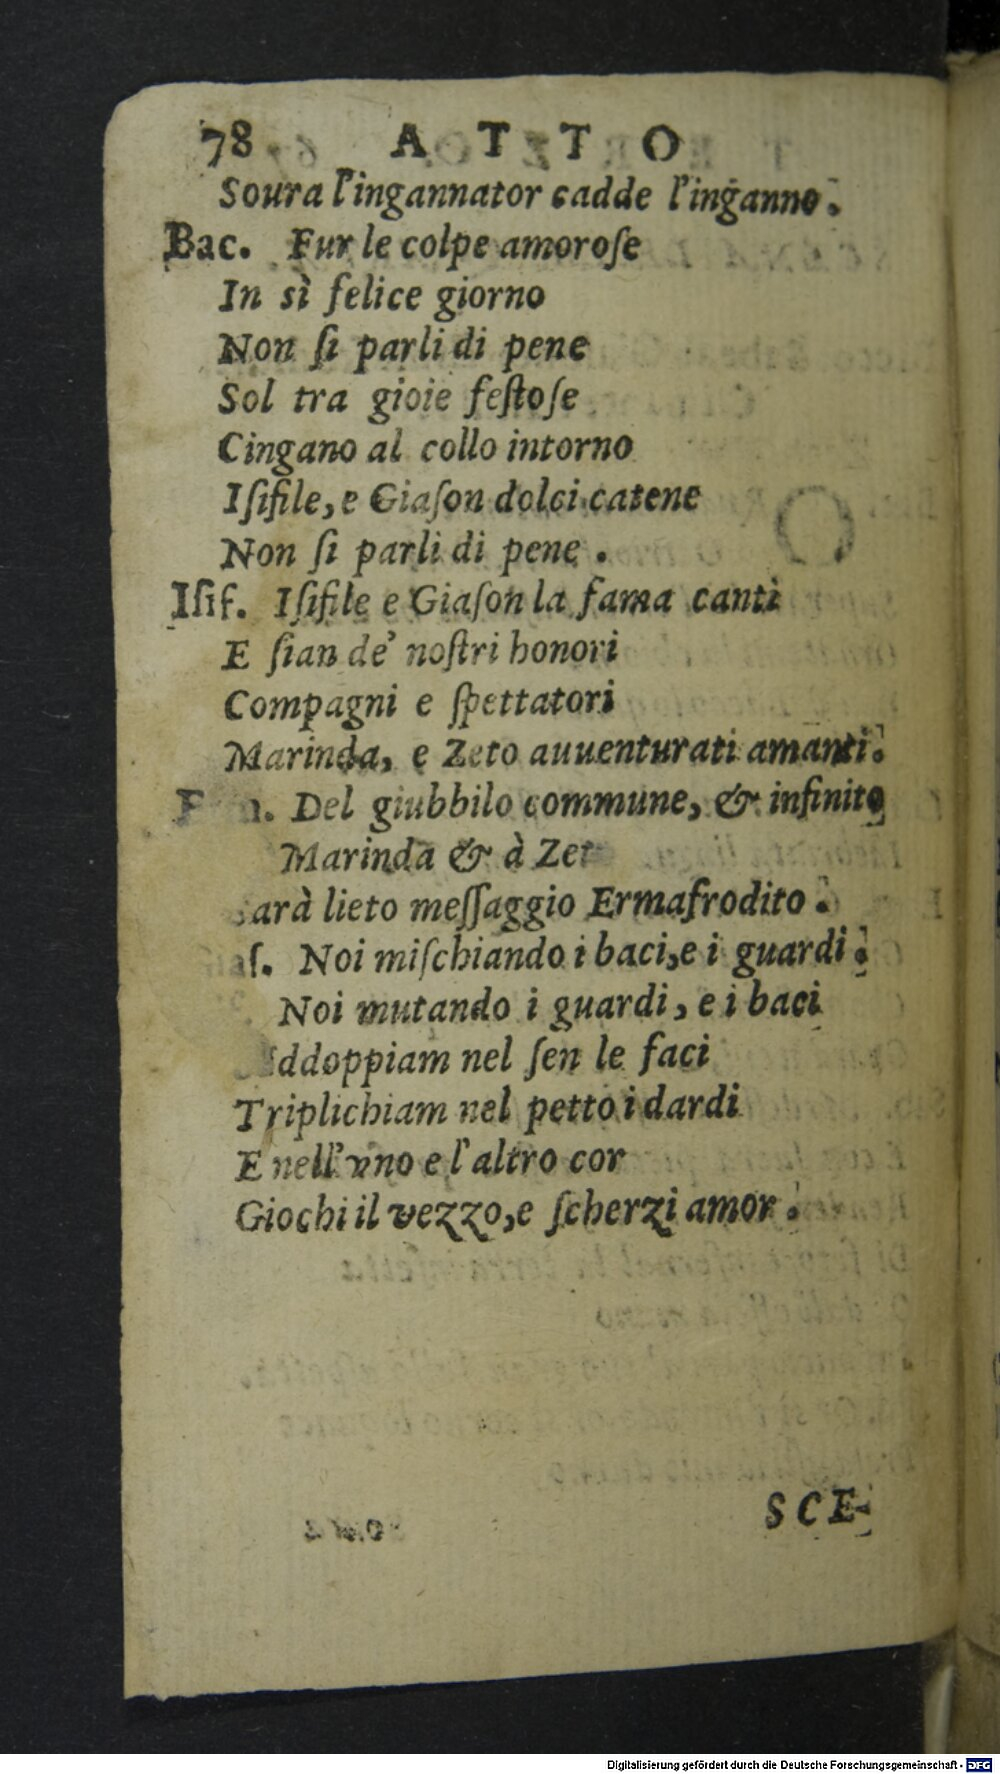 78 ATTO
Soura l'ingannator cadde l'inganno.
Bac. Fur le colpe amoroſe
In sì felice giorno
Non ſi parli di pene
Sol tra gioie feſtoſe
Cingano al collo intorno
Iſifile, e Giaſon dolci catene
Non ſi parli di pene.
Iſif. Iſifile e Giaſon la fama canti
E ſian de' noſtri honori
Compagni e ſpettatori
Marinda, e Zeto auuenturati amanti.
Del giubbilo commune, & infinito
Marinda & à
lieto meſſaggio Ermafrodito.
Noi miſchiando i baci, e i guardi.
Noi mutando i guardi, e i baci
nel ſen le faci
Triplichiam nel petto i dardi
E nell'vno e l'altro cor
Giochi il vezzo, e ſcherzi amor.
SCE-
Digitalisierung gefördert durch die Deutsche Forschungsgemeinschaft - DFG